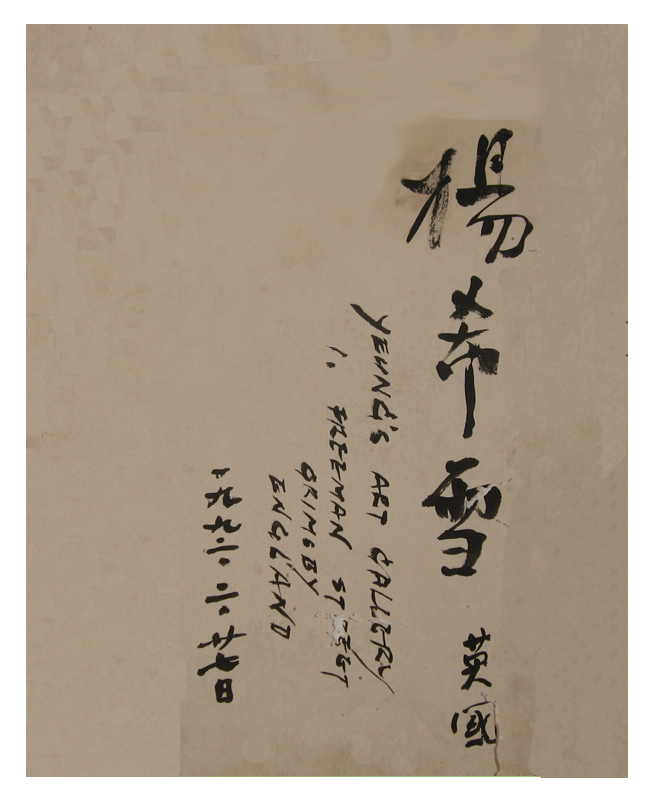 楊希雪 英國
YEUNG'S ART GALLERY
1, FREEMAN STREET
GRIMSBY
ENGLAND